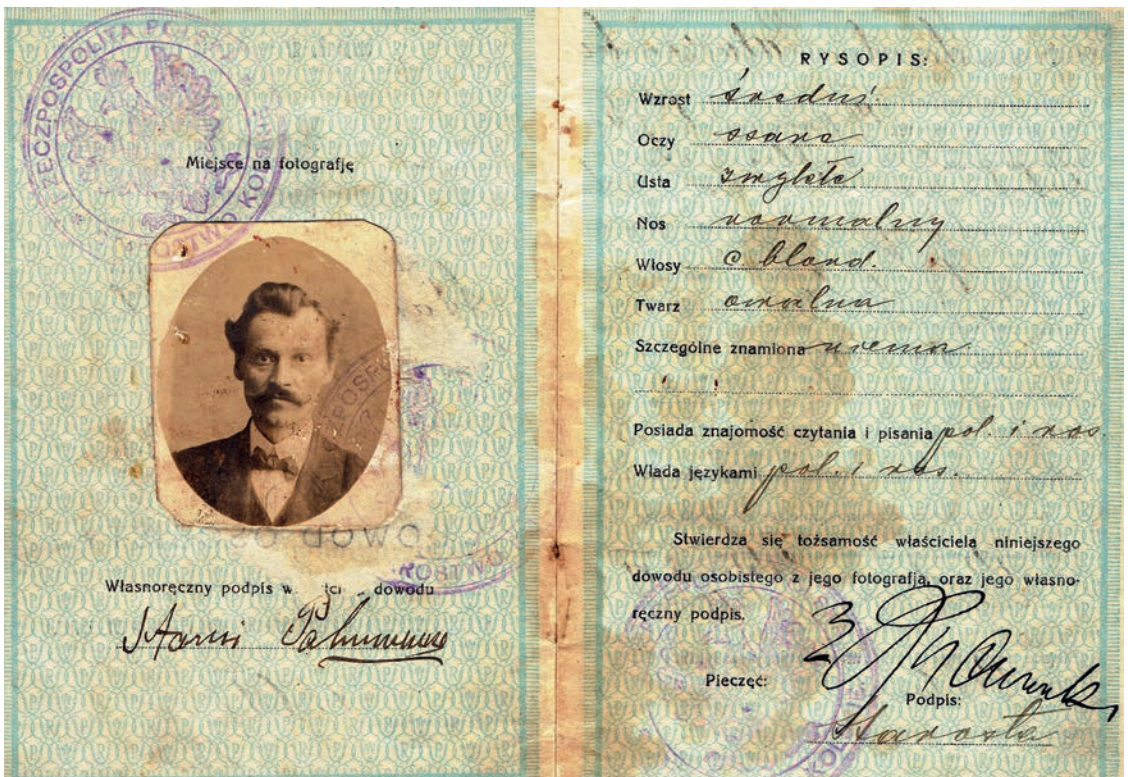 RZECZPOSPOLITA POLSKA
STAROSTWO KOL
Miejsce na fotografję
DOWO
ROSTWO
Własnoręczny podpis w ści dowodu
RYSOPIS:
Wzrost średni
Oczy szare
Usta zwykłe
Nos normalny
Włosy c. blond.
Twarz owalna
Szczególne znamiona niema
Posiada znajomość czytania i pisania pol. i ros.
Włada językami pol. i ros.
Stwierdza się tożsamość właściciela niniejszego
dowodu osobistego z jego fotografją, oraz jego własno-
ręczny podpis.
Pieczęć:
Podpis:
Starosta